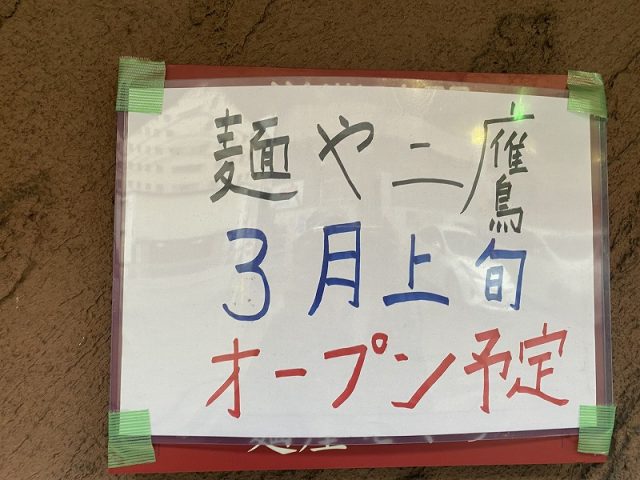 麺や二鷹
3月上旬
オープン予定